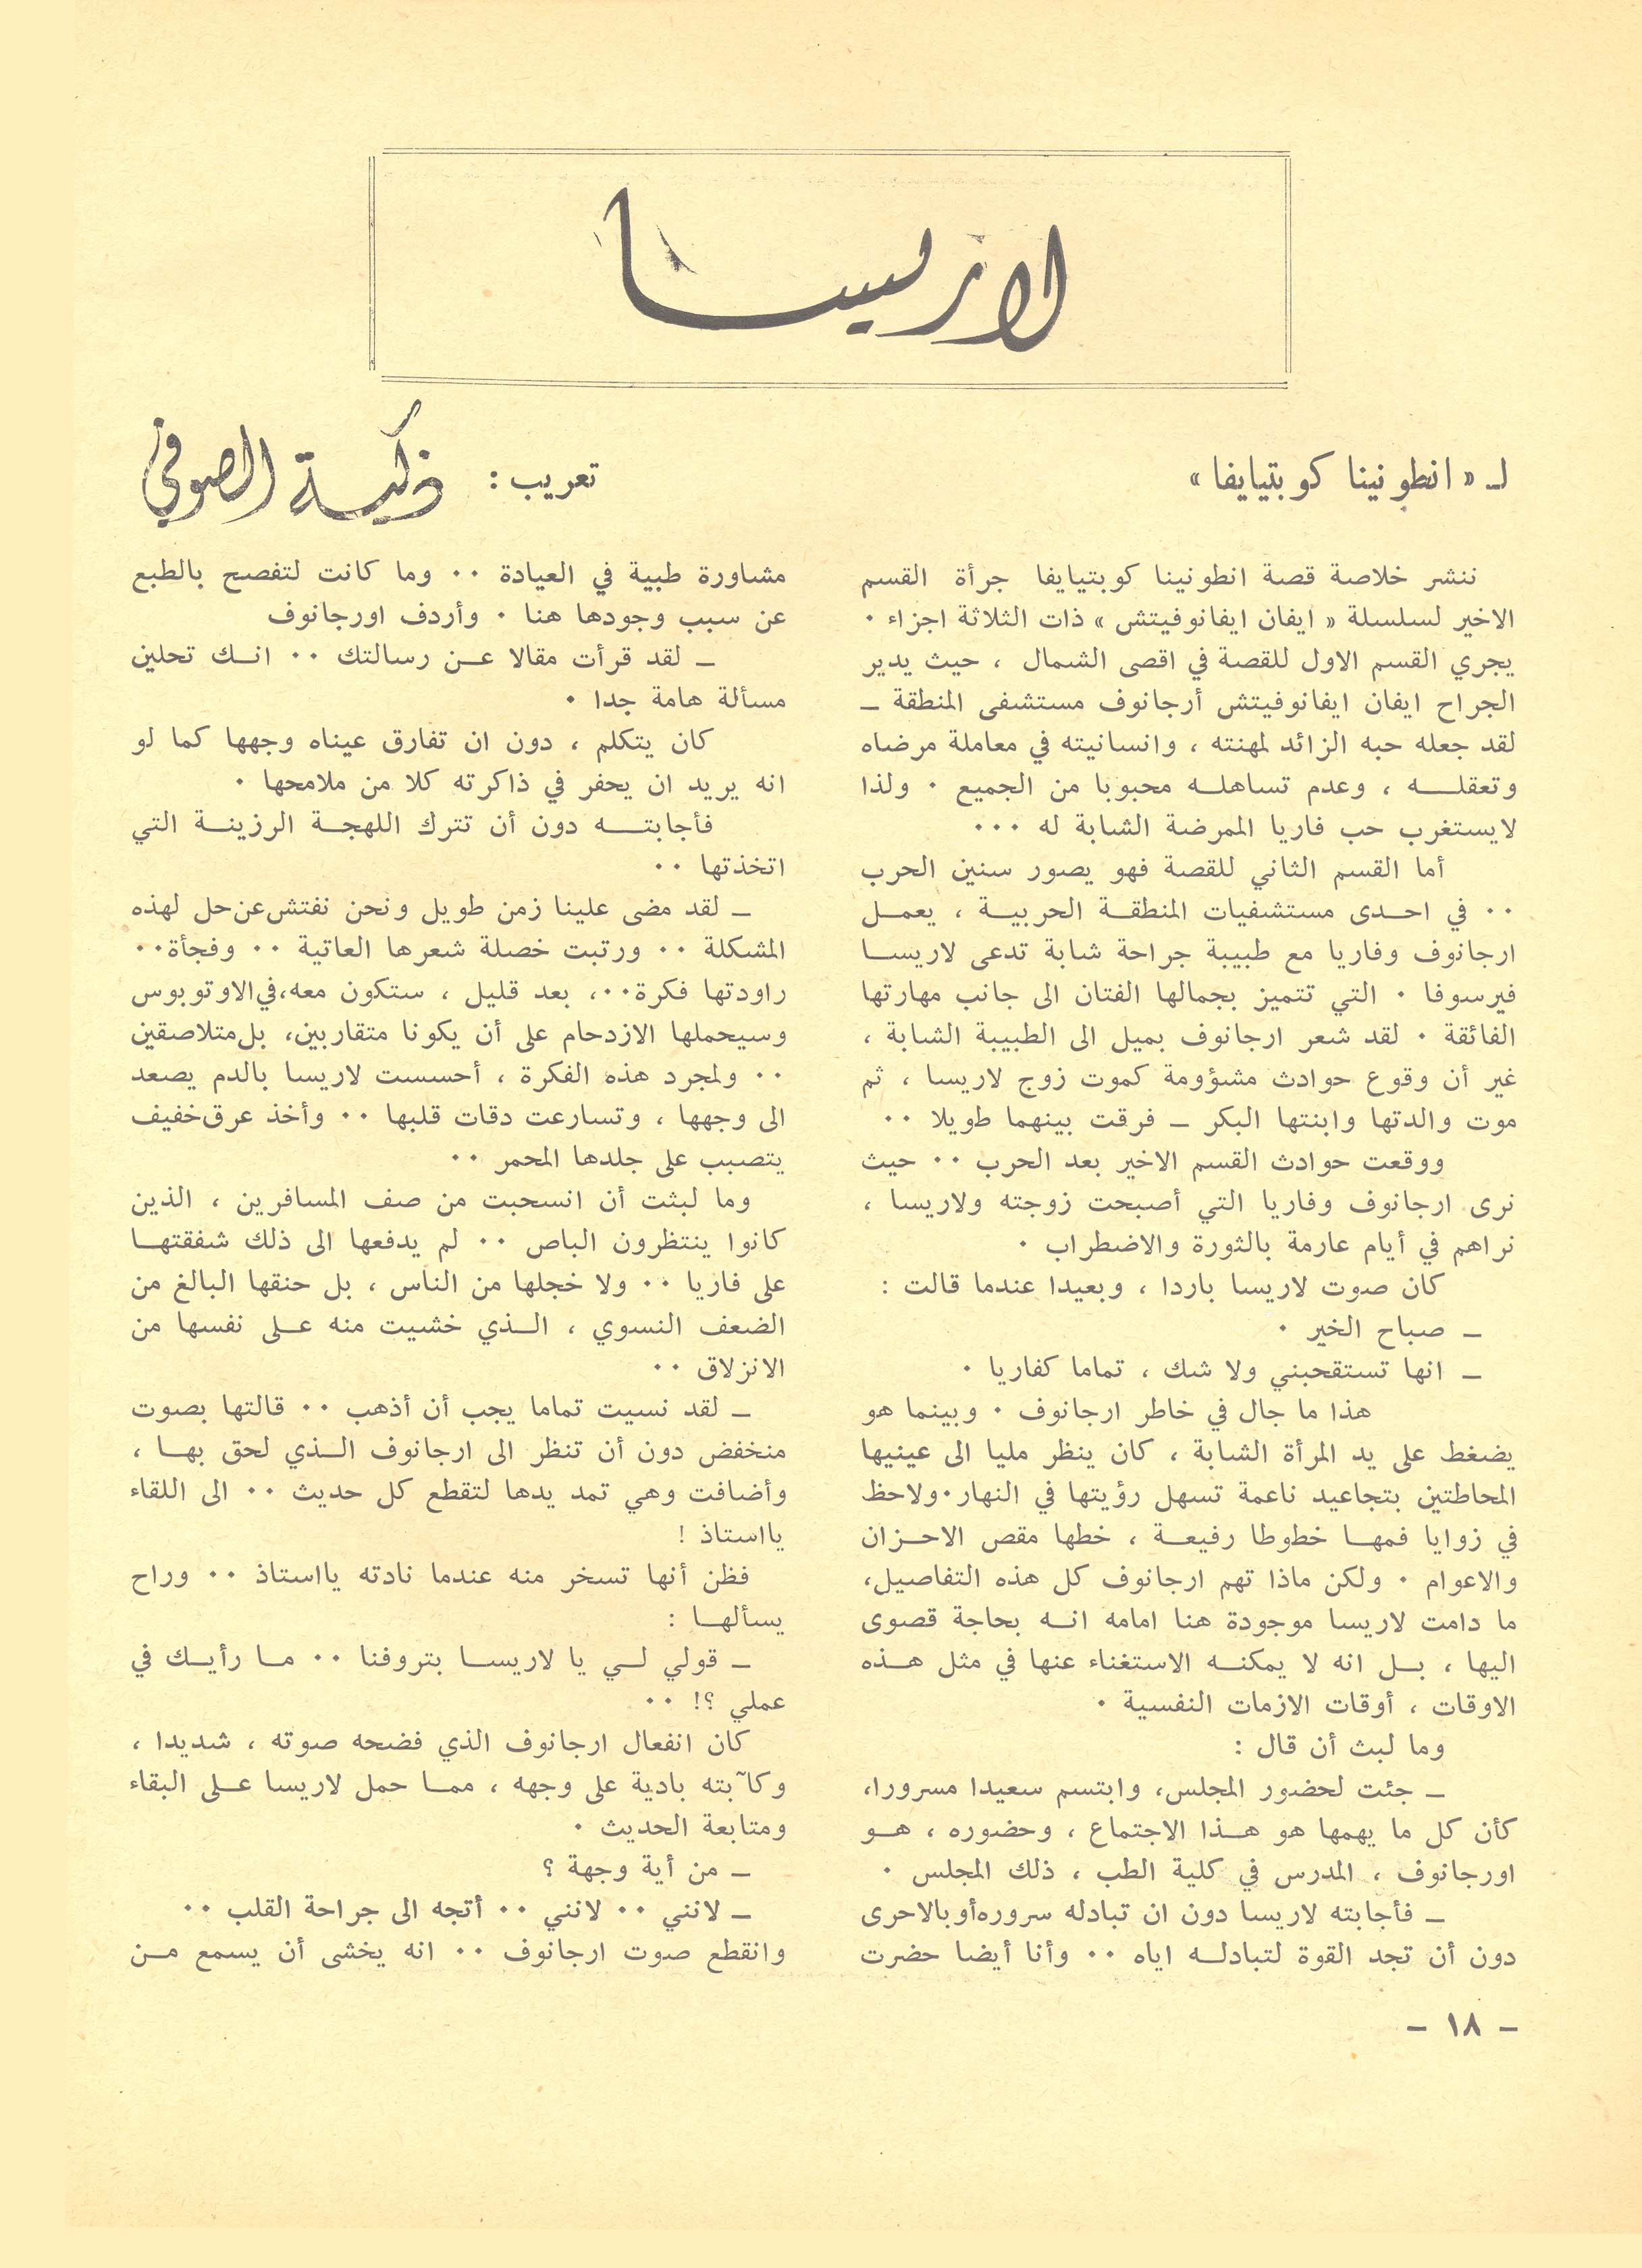 لاريسا
لـ « انطونينا كوبتيايفا »
تعريب : زكية الصوفي
ننشر خلاصة قصة انطونينا كوبتيايفا جرأة القسم
الاخير لسلسلة « ايفان ايفانوفيتش » ذات الثلاثة اجزاء ٠
يجري القسم الاول للقصة في اقصى الشمال ، حيث يدير
الجراح ايفان ايفانوفيتش أرجانوف مستشفى المنطقة ـ
لقد جعله حبه الزائد لمهنته ، وانسانيته في معاملة مرضاه
وتعقله ، وعدم تساهله محبوبا من الجميع ٠ ولذا
لايستغرب حب فاريا الممرضة الشابة له ٠٠٠
أما القسم الثاني للقصة فهو يصور سنين الحرب
٠٠ في احدى مستشفيات المنطقة الحربية ، يعمل
ارجانوف وفاريا مع طبيبة جراحة شابة تدعى لاريسا
فيرسوفا ٠ التي تتميز بجمالها الفتان الى جانب مهارتها
الفائقة ٠ لقد شعر ارجانوف بميل الى الطبيبة الشابة ،
غير أن وقوع حوادث مشؤومة كموت زوج لاريسا ، ثم
موت والدتها وابنتها البكر ـ فرقت بينهما طويلا ٠٠
ووقعت حوادث القسم الاخير بعد الحرب ٠٠ حيث
نرى ارجانوف وفاريا التي أصبحت زوجته ولاريسا ،
نراهم في أيام عارمة بالثورة والاضطراب ٠
كان صوت لاريسا باردا ، وبعيدا عندما قالت :
ـ صباح الخير ٠
ـ انها تستقحبني ولا شك ، تماما كفاريا ٠
هذا ما جال في خاطر ارجانوف ٠ وبينما هو
يضغط على يد المرأة الشابة ، كان ينظر مليا الى عينيها
المحاطتين بتجاعيد ناعمة تسهل رؤيتها في النهار٠ولاحظ
في زوايا فمها خطوطا رفيعة ، خطها مقص الاحزان
والاعوام ٠ ولكن ماذا تهم ارجانوف كل هذه التفاصيل،
ما دامت لاريسا موجودة هنا امامه انه بحاجة قصوى
اليها ، بل انه لا يمكنه الاستغناء عنها في مثل هذه
الاوقات ، أوقات الازمات النفسية ٠
وما لبث أن قال :
ـ جئت لحضور المجلس، وابتسم سعيدا مسرورا،
كأن كل ما يهمها هو هذا الاجتماع ، وحضوره ، هو
اورجانوف ، المدرس في كلية الطب ، ذلك المجلس ٠
ـ فأجابته لاريسا دون ان تبادله سروره أو بالاحرى
دون أن تجد القوة لتبادله اياه ٠٠ وأنا أيضا حضرت
مشاورة طبية في العيادة ٠٠ وما كانت لتفصح بالطبع
عن سبب وجودها هنا ٠ وأردف اورجانوف
ـ لقد قرأت مقالا عن رسالتك ٠٠ انك تحلين
مسألة هامة جدا ٠
كان يتكلم ، دون ان تفارق عيناه وجهها كما لو
انه يريد ان يحفر في ذاكرته كلا من ملامحها ٠
فأجابته دون أن تترك اللهجة الرزينة التي
اتخذتها ٠٠
ـ لقد مضى علينا زمن طويل ونحن نفتش عن حل لهذه
المشكلة ٠٠ ورتبت خصلة شعرها العاتية ٠٠ وفجأة٠٠
راودتها فكرة٠٠، بعد قليل ، ستكون معه،في الاوتوبوس
وسيحملها الازدحام على أن يكونا متقاربين، بل متلاصقين
٠٠ ولمجرد هذه الفكرة ، أحسست لاريسا بالدم يصعد
الى وجهها ، وتسارعت دقات قلبها ٠٠ وأخذ عرق خفيف
يتصبب على جلدها المحمر ٠٠
وما لبثت أن انسحبت من صف المسافرين ، الذين
كانوا ينتظرون الباص ٠٠ لم يدفعها الى ذلك شفقتها
على فاريا ٠٠ ولا خجلها من الناس ، بل حنقها البالغ من
الضعف النسوي ، الذي خشيت منه على نفسها من
الانزلاق ٠٠
ـ لقد نسيت تماما يجب أن أذهب ٠٠ قالتها بصوت
منخفض دون أن تنظر الى ارجانوف الذي لحق بها ،
وأضافت وهي تمد يدها لتقطع كل حديث ٠٠ الى اللقاء
يااستاذ !
فظن أنها تسخر منه عندما نادته يااستاذ ٠٠ وراح
يسألها :
ـ قولي لي يا لاريسا بتروفنا ٠٠ ما رأيك في
عملي ؟! ٠٠
كان انفعال ارجانوف الذي فضحه صوته ، شديدا ،
وكآبته بادية على وجهه ، مما حمل لاريسا على البقاء
ومتابعة الحديث ٠
ـ من أية وجهة ؟
ـ لانني ٠٠ لانني ٠٠ أتجه الى جراحة القلب ٠٠
وانقطع صوت ارجانوف ٠٠ انه يخشى أن يسمع من
ـ ١٨ ـ